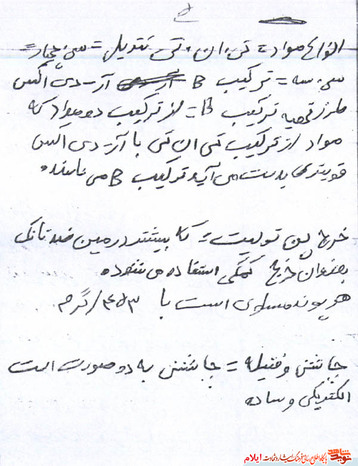 انواع مواد = تی ان تی تتریل = سی چهار =
سی سه = ترکیب B آر - دی اکس
طرز تهیه ترکیب B = از ترکیب دو مواد که
مواد از ترکیب تی ان تی با آر - دی اکس
قویتری بدست می آید ترکیب B می نامند.
خرج پن تولیت = که بیشتر در مین ضد تانک
بعنوان خرج کمکی استفاده می شده
هر پوند مساوی است با ۴۵۳/ گرم
چاشنی و فتیله = چاشنی به دو صورت است
الکتریکی و ساده
ایلام